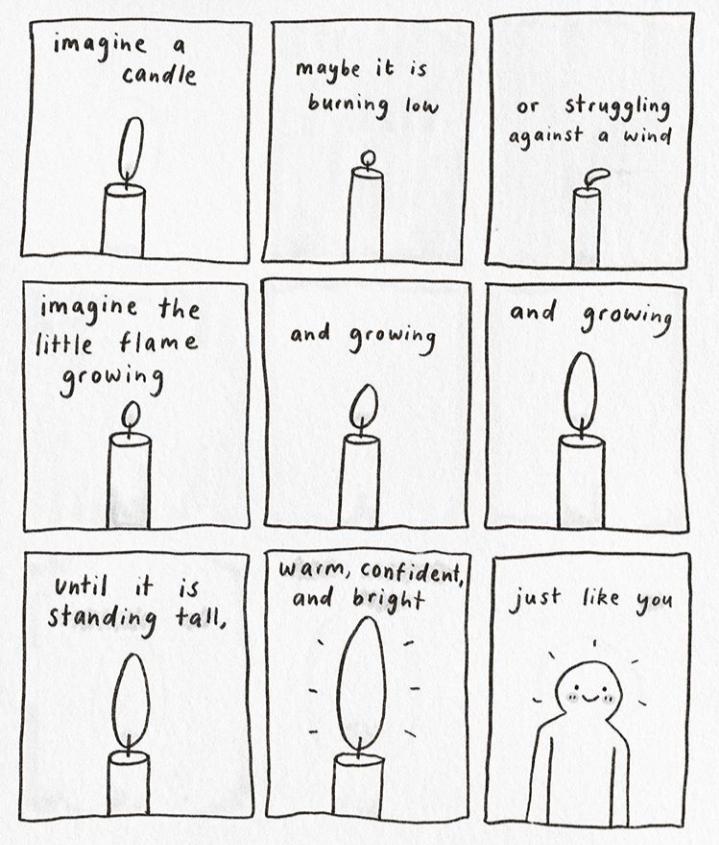 imagine a
candle
maybe it is
burning low
or struggling
against a wind
imagine the
little flame
growing
and growing
and growing
until it is
standing tall,
warm, confident,
and bright
just like you